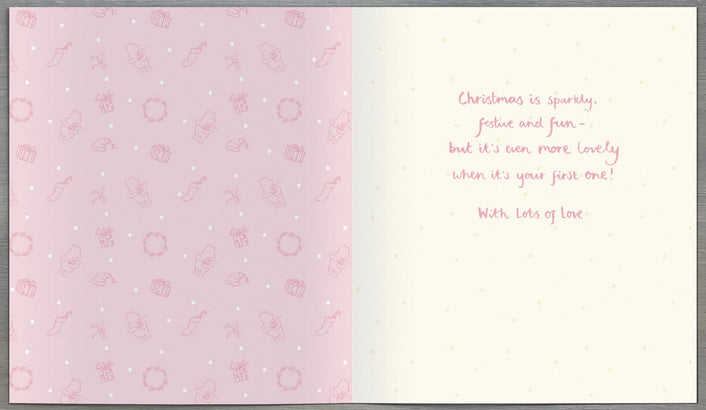 Christmas is sparkly,
festive and fun –
but it's even more lovely
when it's your first one!
With Lots of Love